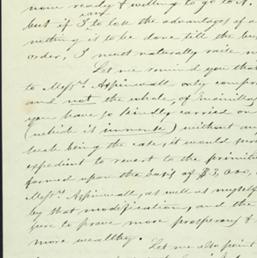 more ready & willing to go to
but if I to lose the advantage of a
nothing is to be done till the
order, I must naturally
Let me remind you that
to Messrs Aspinwall only
and not the whole, of
you have so kindly carried on
(which is immense) without
such being the case, it would
expedient to resort to the
formed upon the basis of
Messrs Aspinwall, as well as myself
by that modification, and the
sure to prove more prosperous &
more wealthy.
Let me also point